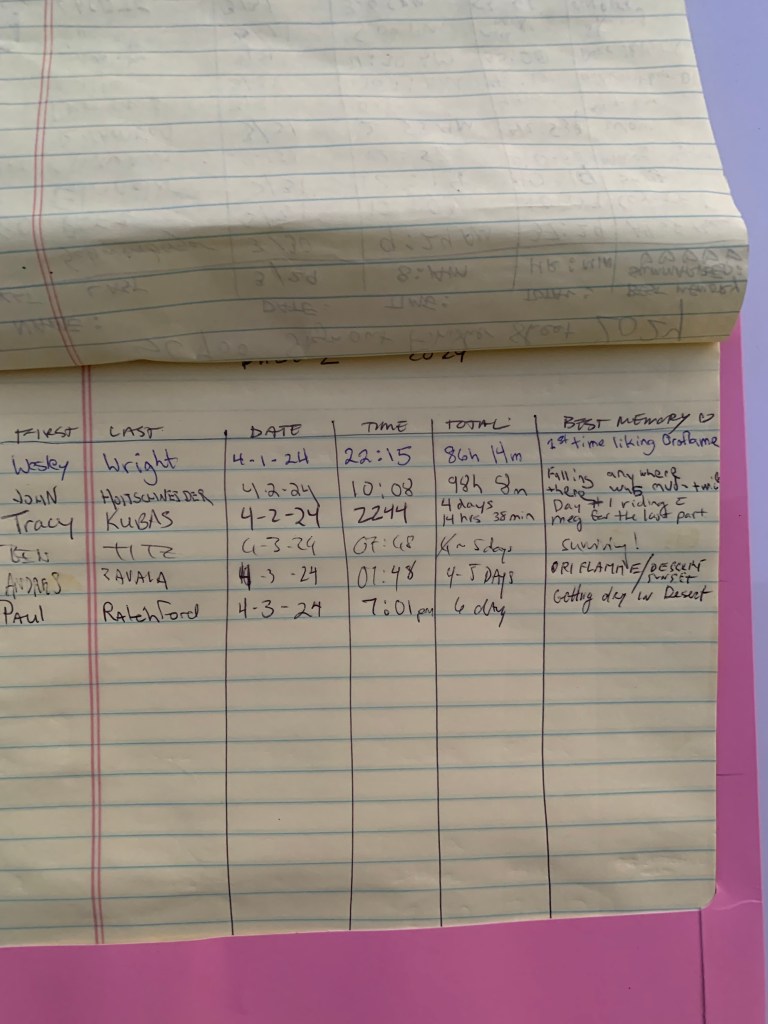 2024
FIRST LAST DATE TIME TOTAL: BEST MEMORY ♡
Wesley Wright 4-1-24 22:15 86h 14m 1st time liking Oroflame
JOHN HOLTSCHNEIDER 4-2-24 10:08 98h 8m Falling anywhere there was mud +
Tracy KUBAS 4-2-24 2244 4 days 14 hrs 38 min Day #1 riding c̄ meg for the last part
TITZ 4-3-24 07:48 4~5days surviving!
ANDRES ZAVALA 4-3-24 01:48 4-5 DAYS ORIFLAMME/DESCENT SUNSET
PAUL Ratchford 4-3-24 7:01pm 6 day Getting dry in Desert